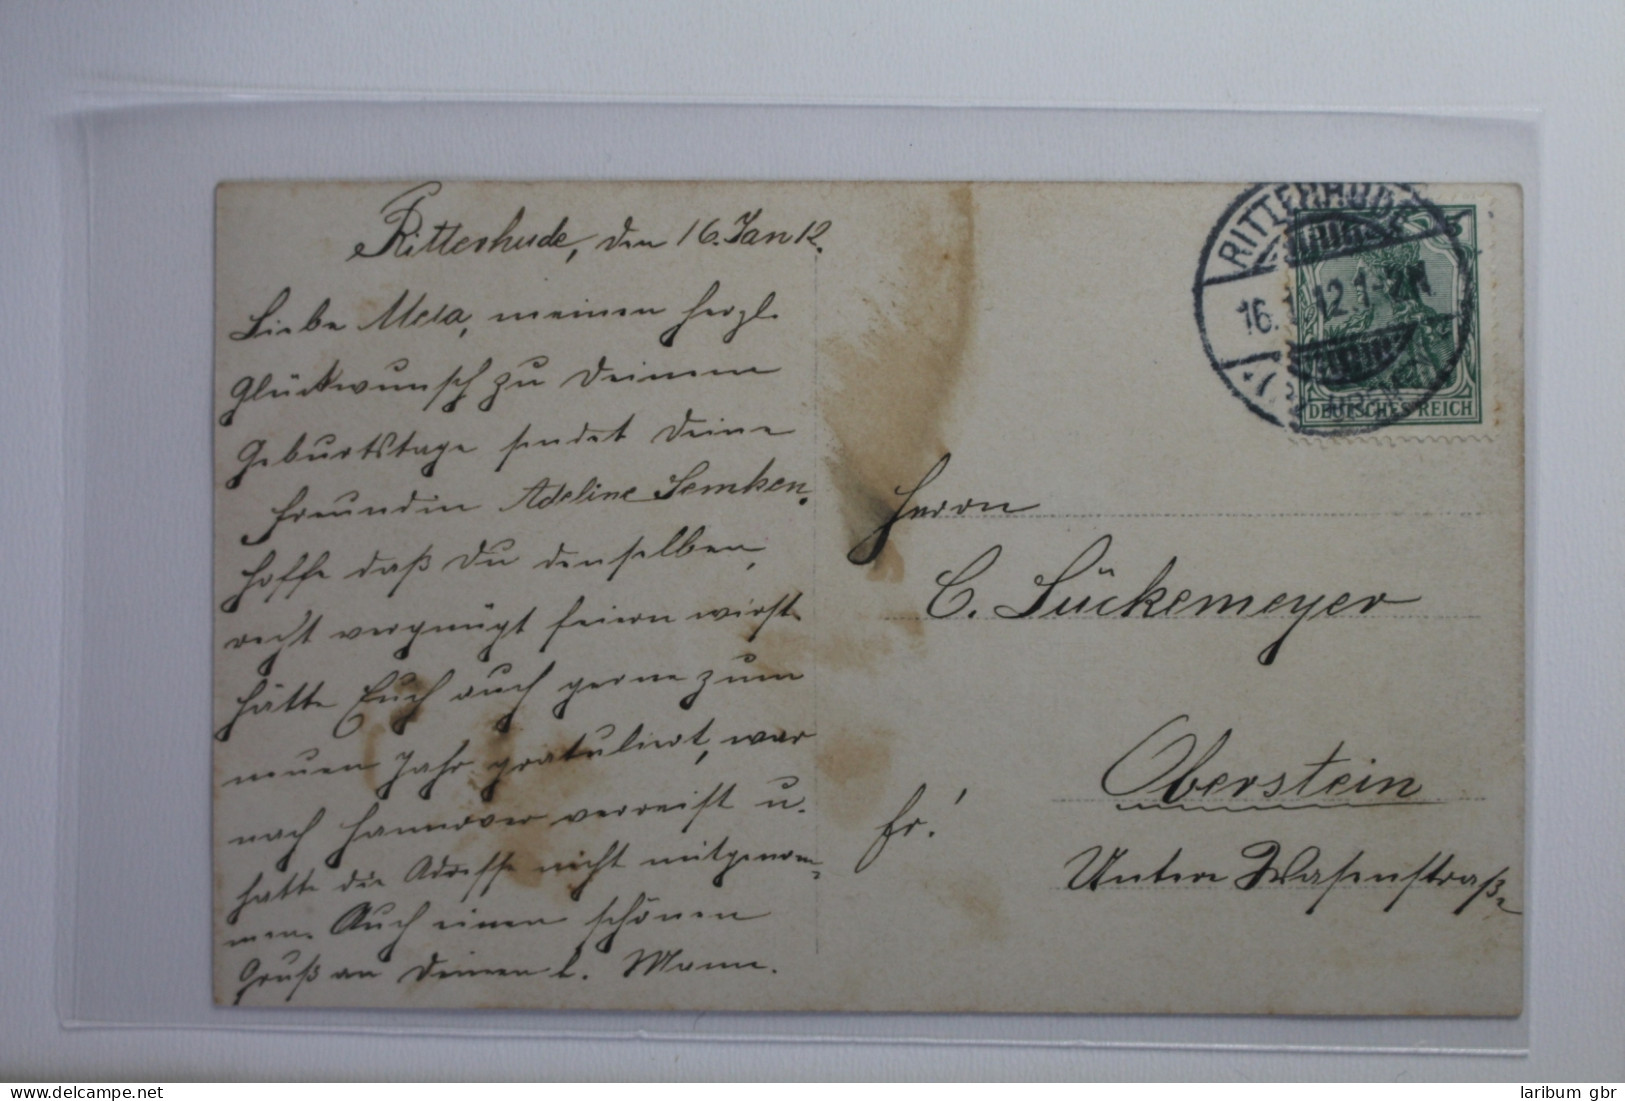 Ritterhude, den 16. Jan 12.
Liebe Meta, meinen herzl.
Glückwunsch zu Deinem
Geburtstage sendet Deine
Freundin Adeline Semken.
Hoffe daß Du denselben,
recht vergnügt feiern wirst.
Hätte Euch auch gerne zum
neuen Jahr gratuliert, war
nach Hannover verreist u.
hatte die Adresse nicht mitgenom-
men. Auch einen schönen
Gruß an Deinen l. Mann.
RITTERHUDE
16. 1. 12. 1-2 N
DEUTSCHES REICH
Herrn
C. Lückemeyer
Oberstein
fr!
Untere Wasenstraße
laribum gbr